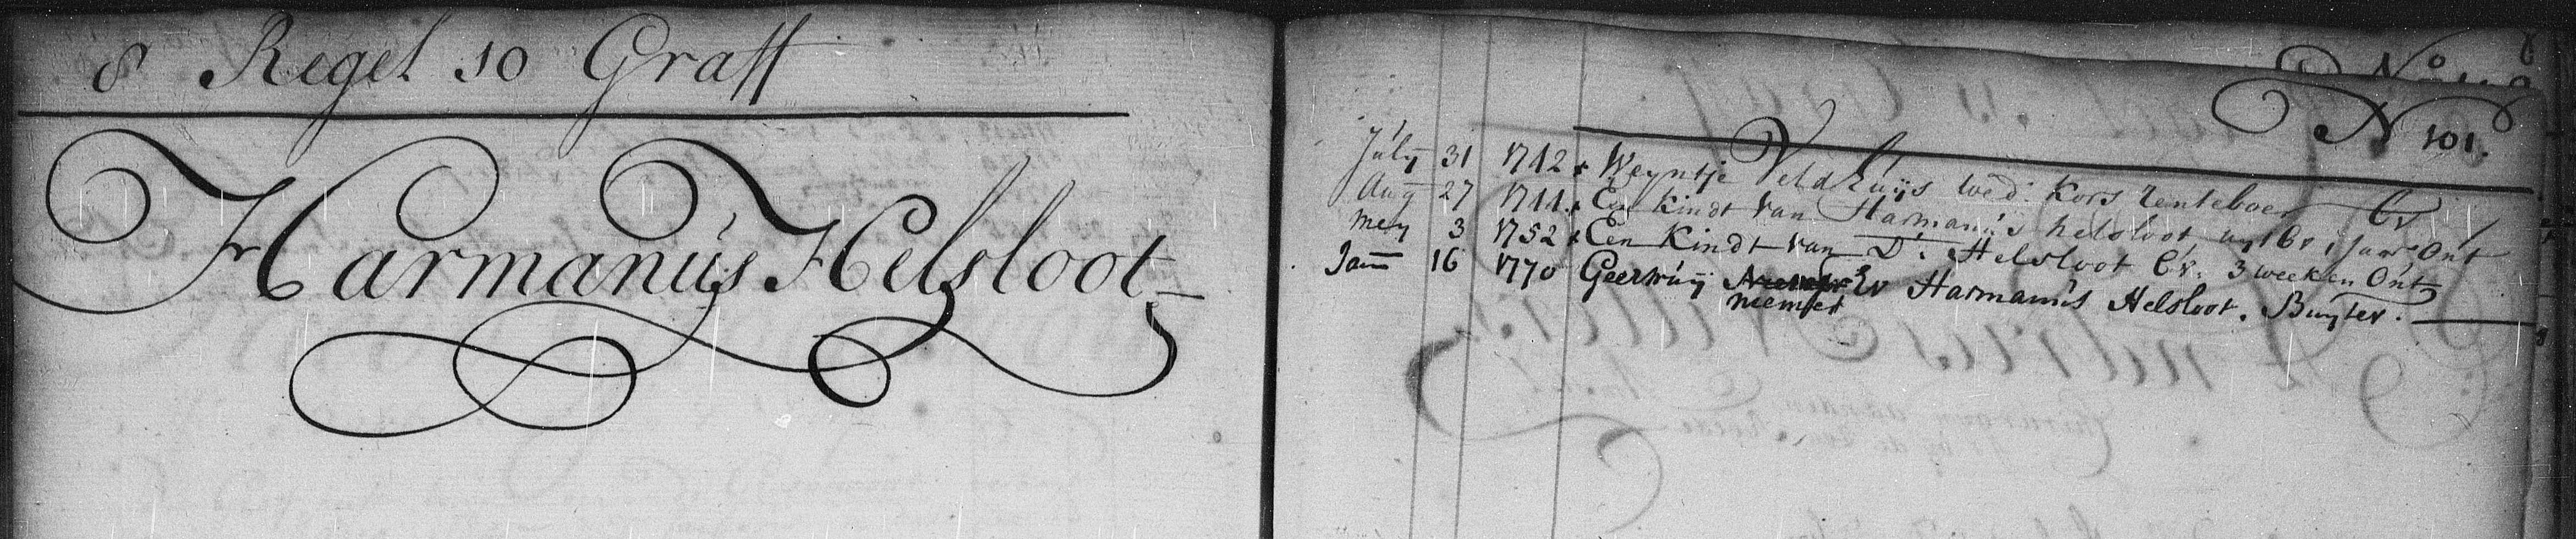 8 Regel 10 Graff
Harmanus Helsloot
No 101.
July 31 1742 Weyntje Veldhuijs wed: Kors Renteboer Bv
Aug 27 1744 Een kindt van Harmanus helsloot uyt Bv 1 Jaar Ont
Mey 3 1752 Een Kindt van Do: Helsloot Bv. 3 weeken Ont
Jan 16 1770 Geertruij Ev Harmanus Helsloot. Buyten.